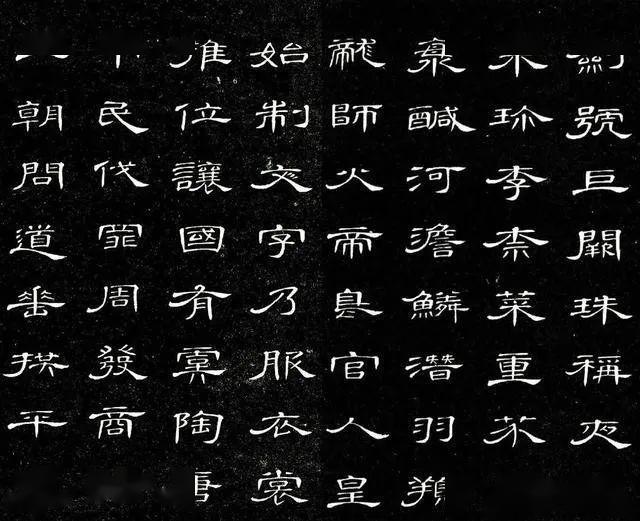 劍號巨闕珠稱夜
果珍李柰菜重芥
海醎河澹鱗潛羽翔
龍師火帝鳥官人皇
始制文字乃服衣裳
推位讓國有虞陶唐
民伐罪周發商
朝問道垂拱平